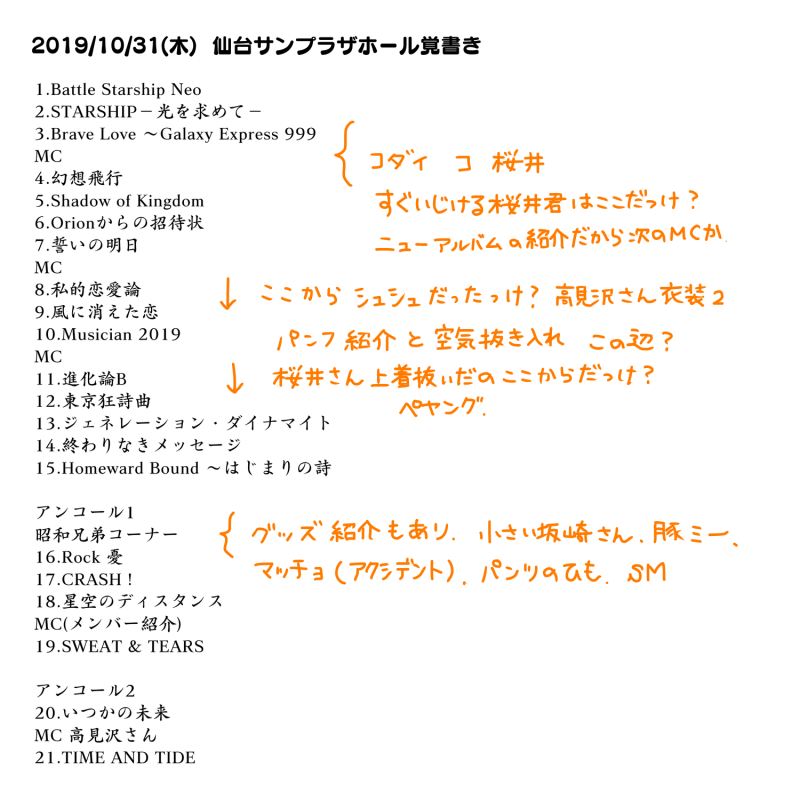 2019/10/31(木) 仙台サンプラザホール覚書き
1.Battle Starship Neo
2.STARSHIP－光を求めて－
3.Brave Love ～Galaxy Express 999
MC
コダイ コ 桜井
4.幻想飛行
5.Shadow of Kingdom
すぐいじける桜井君はここだっけ？
6.Orionからの招待状
7.誓いの明日
ニューアルバムの紹介だから次のMCか
MC
8.私的恋愛論
ここから シュシュだったっけ？ 高見沢さん衣装2
9.風に消えた恋
10.Musician 2019
パンフ紹介と空気抜き入れ この辺？
MC
11.進化論B
桜井さん上着抜いだのここからだっけ？
12.東京狂詩曲
ペヤング.
13.ジェネレーション・ダイナマイト
14.終わりなきメッセージ
15.Homeward Bound ～はじまりの詩
アンコール1
昭和兄弟コーナー
グッズ紹介もあり. 小さい坂崎さん、豚ミー、
16.Rock 憂
マッチョ(アクシデント), パンツのひも. SM
17.CRASH！
18.星空のディスタンス
MC(メンバー紹介)
19.SWEAT & TEARS
アンコール2
20.いつかの未来
MC 高見沢さん
21.TIME AND TIDE